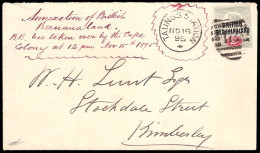 Annexation of British
Bechuanaland,
B.B. was taken over by the Cape
Colony at 12 pm Nov. 15th 1895
TAUNGS STATION
NO 16
95
BRITISH
BECHUANALAND
W. H. Lunt Esqre
Stockdale Street
Kimberley